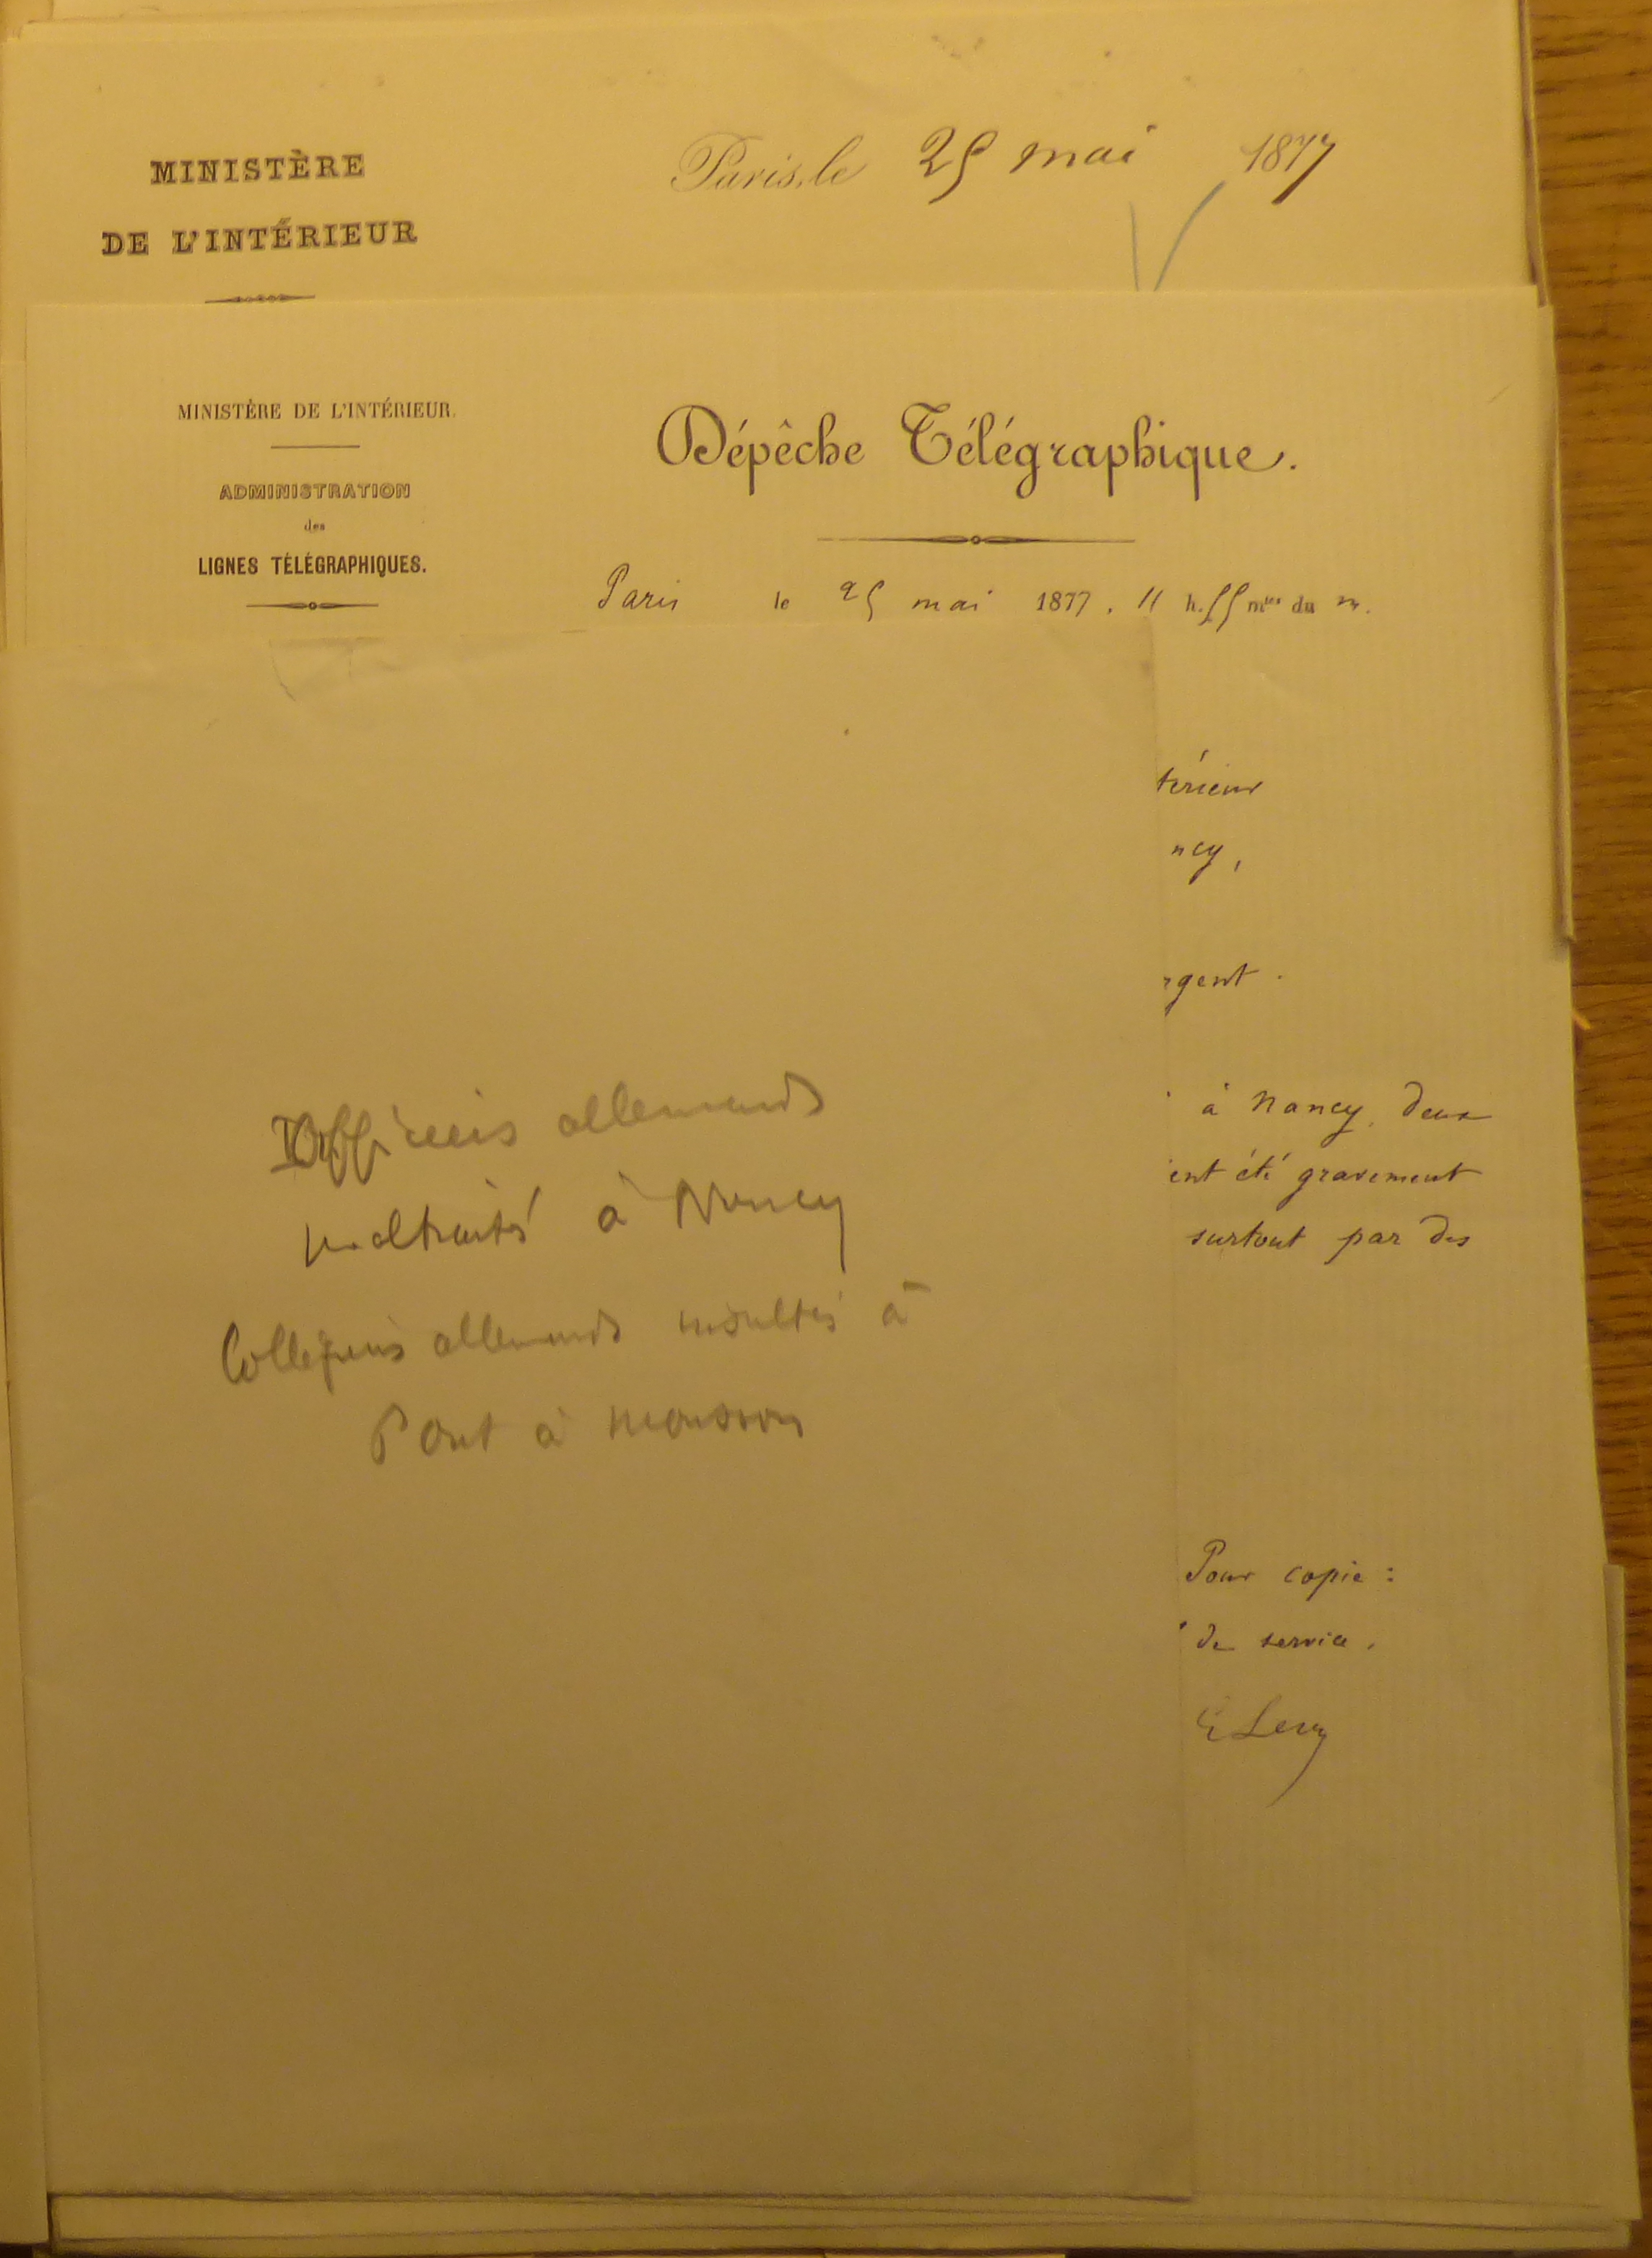 MINISTÈRE
DE L'INTÉRIEUR
Paris, le 25 mai 1877
MINISTÈRE DE L'INTÉRIEUR.
ADMINISTRATION
des
LIGNES TÉLÉGRAPHIQUES.
Dépêche Télégraphique.
Paris le 25 mai 1877. 11 h. 55 mtes du m.
térieur
ncy,
rgent.
à Nancy, deux
ent été gravement
surtout par des
Officiers allemands
maltraités à Nancy
Collégiens allemands insultés à
Pont à Mousson
Pour copie :
de service.